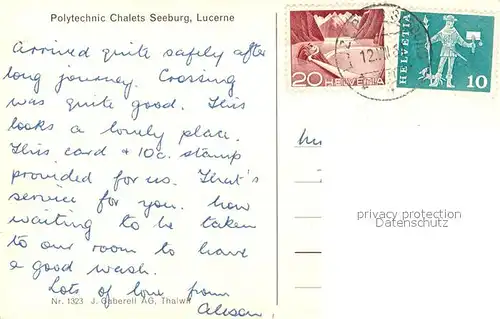 Polytechnic Chalets Seeburg, Lucerne
Arrived quite safely after
long journey. Crossing
was quite good. This
looks a lovely place.
This card + 10c. stamp
provided for us. That's
service for you. Now
waiting to be taken
to our room to have
a good wash.
Lots of love from
Alison
Nr. 1323 J. Gaberell AG, Thalwil
20 HELVETIA
HELVETIA 10
12.
privacy protection
Datenschutz